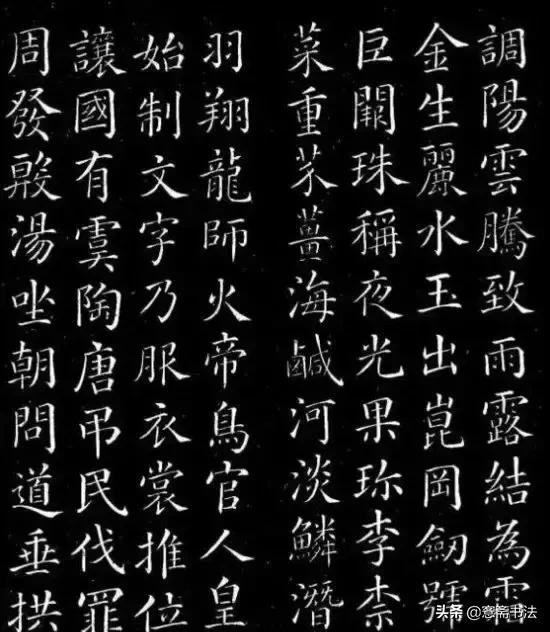 調陽雲騰致雨露結為霜
金生麗水玉出崑岡劒號
巨闕珠稱夜光果珎李柰
菜重芥薑海鹹河淡鱗潛
羽翔龍師火帝鳥官人皇
始制文字乃服衣裳推位
讓國有虞陶唐吊民伐罪
周發殷湯坐朝問道垂拱
头条 @斋书法